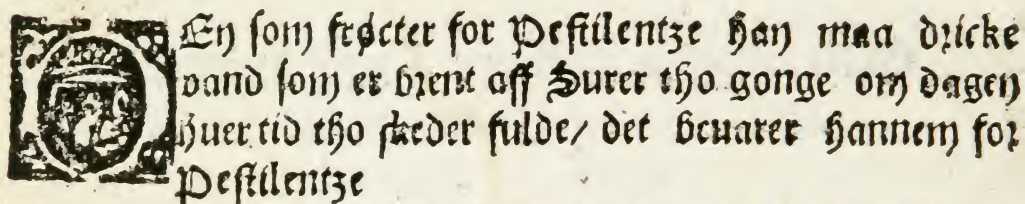 DEn som frøcter for Pestilentze han maa dricke
vand som er brent aff Surer tho gonge om dagen
huer tid tho skeder fulde/ det beuarer hannem for
Pestilentze